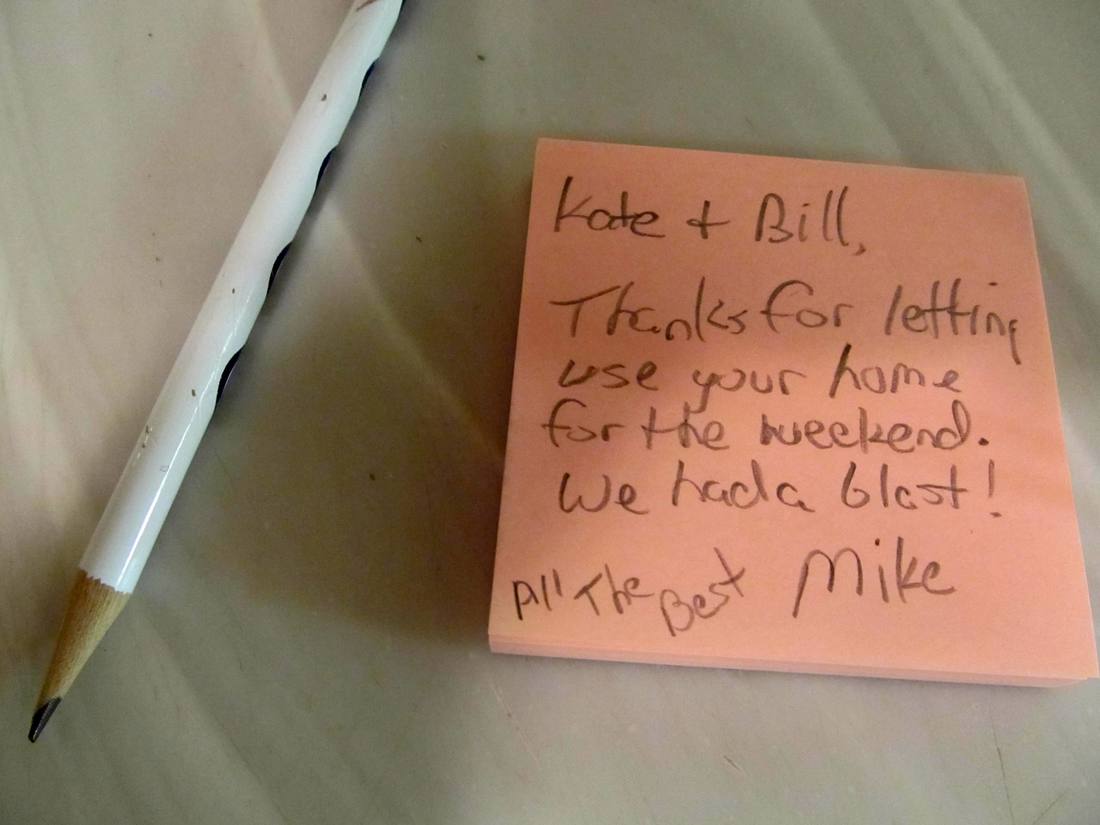 Kate + Bill,
Thanks for letting
use your home
for the weekend.
We had a blast!
All The Best Mike